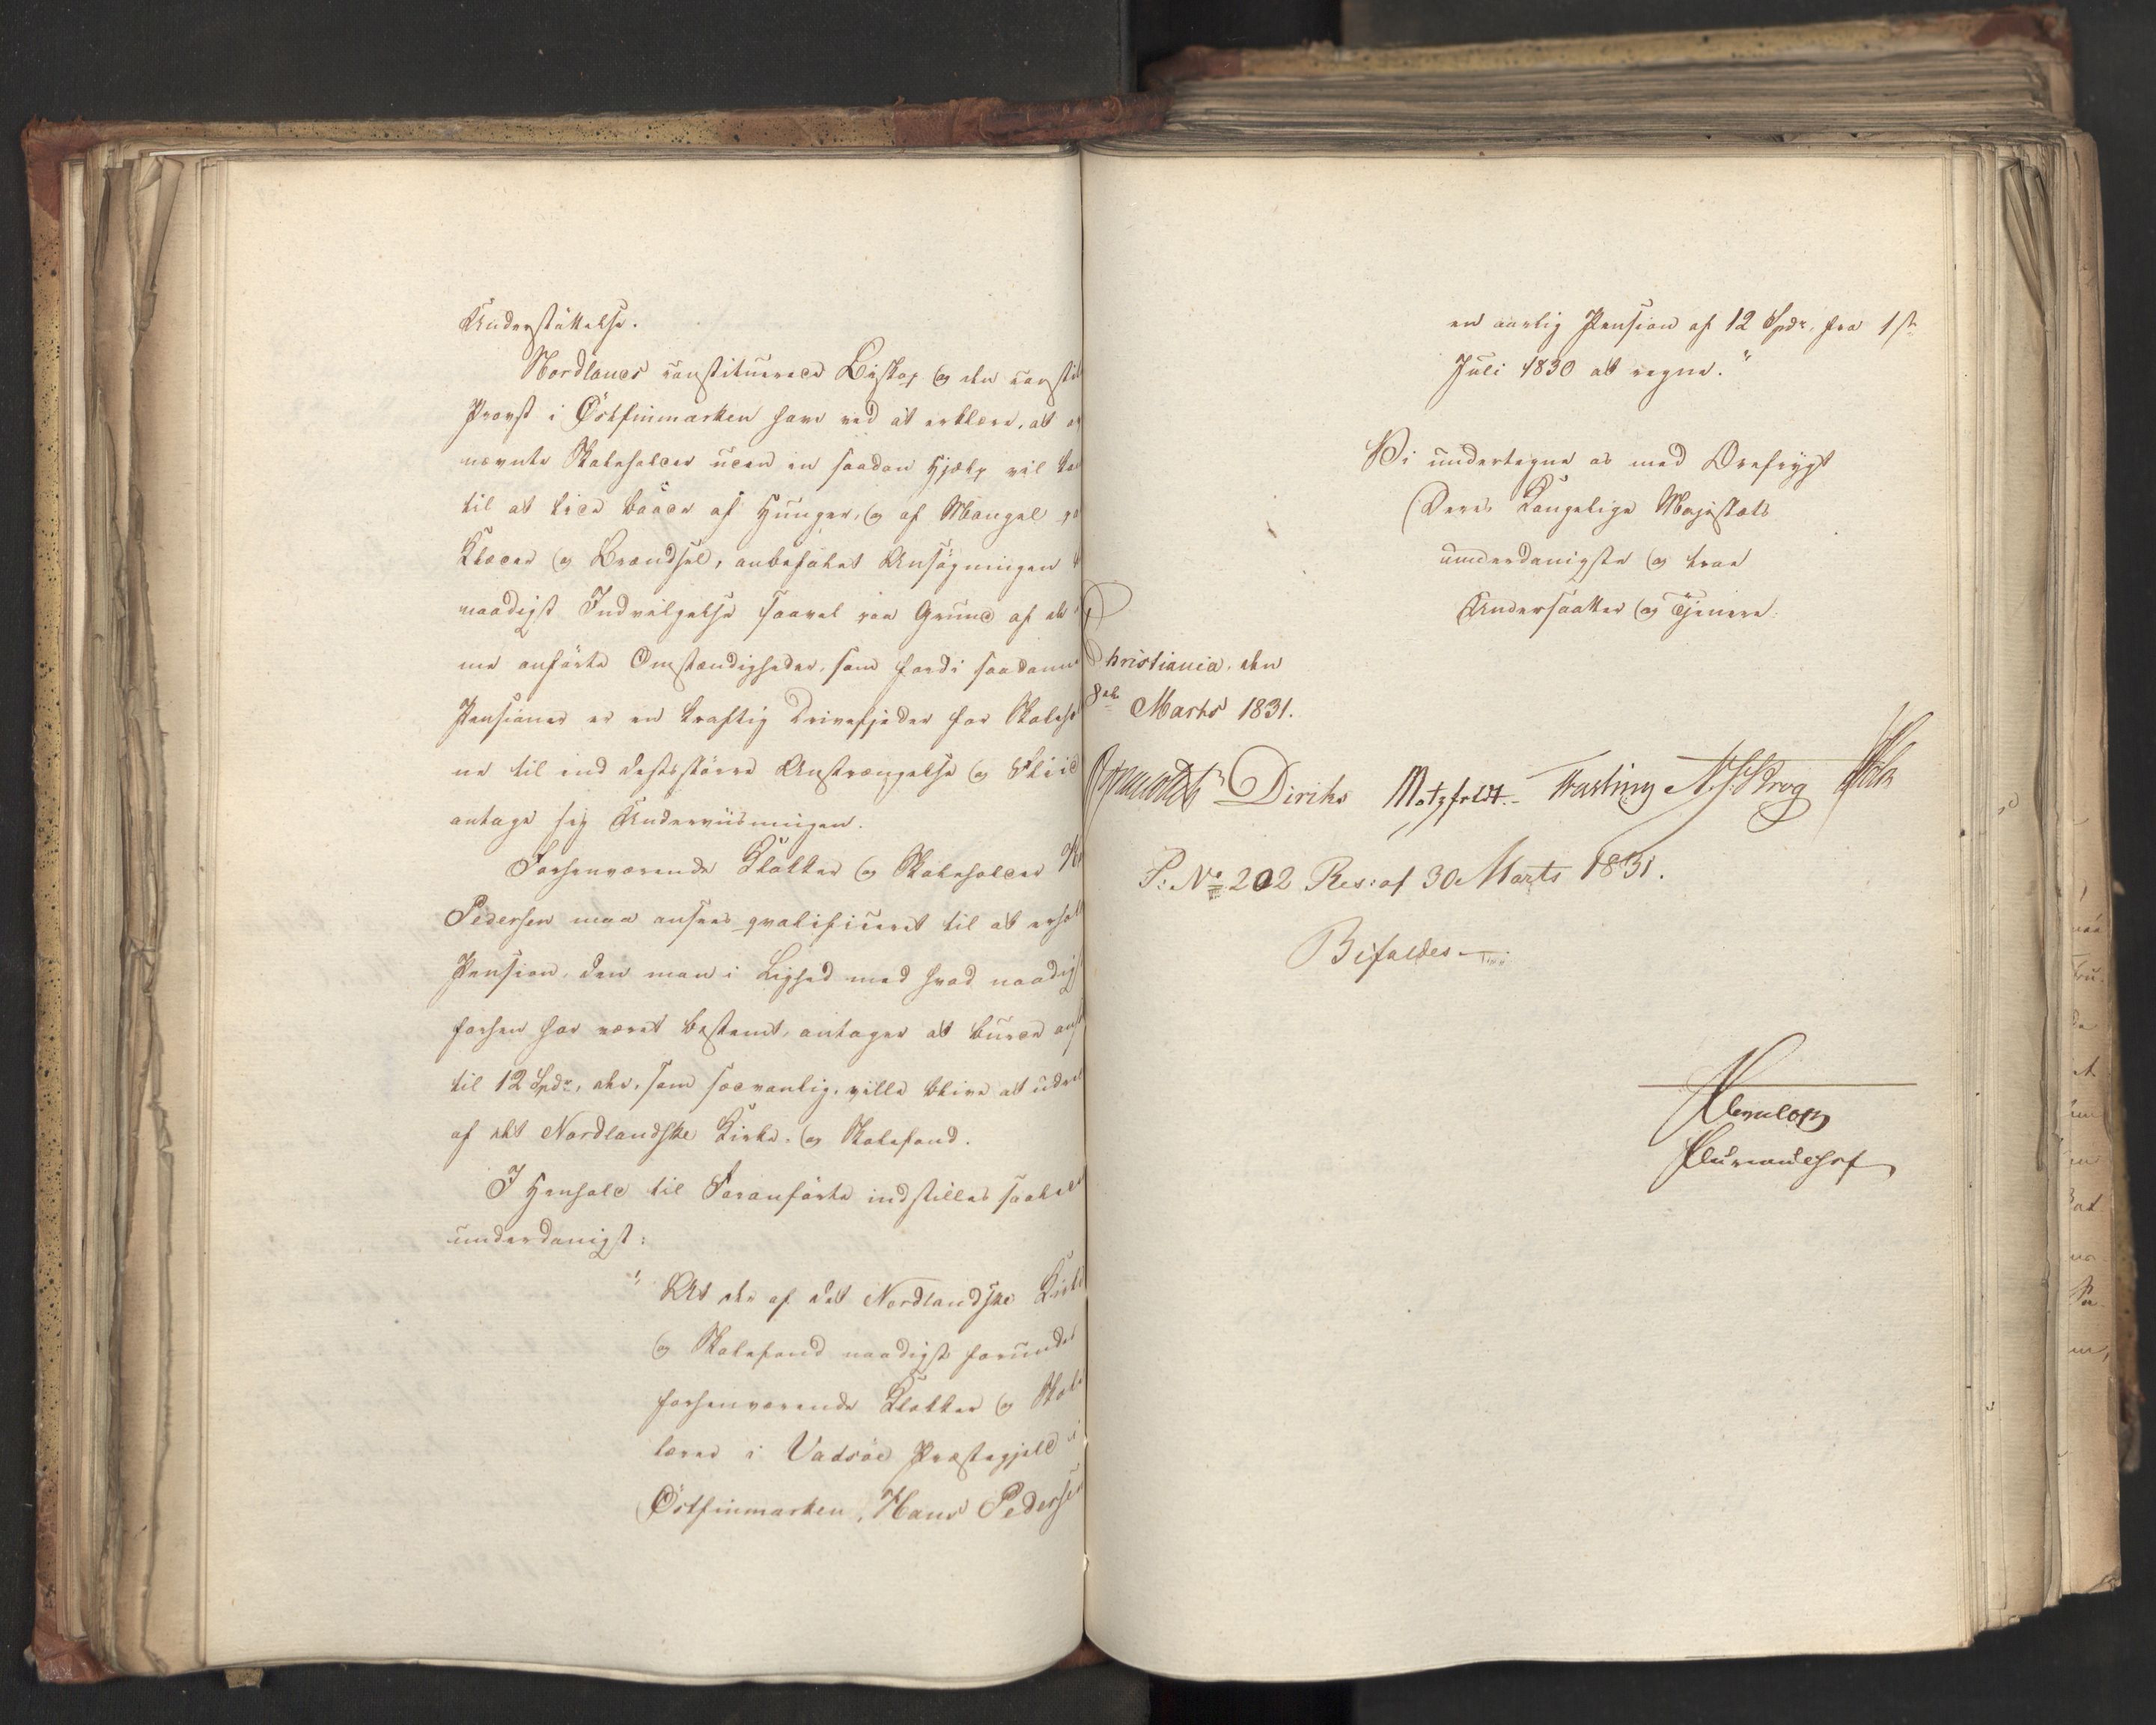 Understöttelse.
Nordlands constituerede Biskop og den constit
Provst i Östfinmarken have ved at erklære, at
nævnte Skoleholder uden en saadan Hjælp vil
til at lide baade af Hunger, og af Mangel
Klæder og Brændsel, anbefalet Ansögningen
naadigst Indvilgelse saavel paa Grund af de
me anförte Omstændigheder, som fordi saadanne
Pensioner er en kraftig Drivefjeder for Skoleho
ne til end desstörre Anstrængelse og Fliid
antage sig Underviisningen.
Forhenværende Klokker og Skoleholder H
Pedersen maa ansees qvalificeret til at erhol
Pension, den man i Lighed med hvad naadigst
forhen har været bestemt, antager at burde
til 12 Spdr, der, som sædvanlig, ville blive at udre
af det Nordlandske Kirke- og Skolefond.
I Henhold til Foranförte indstilles saaledes
underdanigst:
"At der af det Nordlandske Kirke
og Skolefond naadigst forundes
forhenværende Klokker og Skole
lærer i Vadsöe Præstegjeld i
Östfinmarken, Hans Pedersen
en aarlig Pension af 12 Spdr, fra 1ste
Juli 1830 at regne."
Vi undertegne os med Ærefrygt
Deres Kongelige Majestæts
underdanigste og troe
Undersaatter og Tjenere
Christiania, den
8de Marts 1831.
Diriks Motzfeldt. Fasting N. J. Krog
P: No 202 Res: af 30 Marts 1831.
Bifaldes